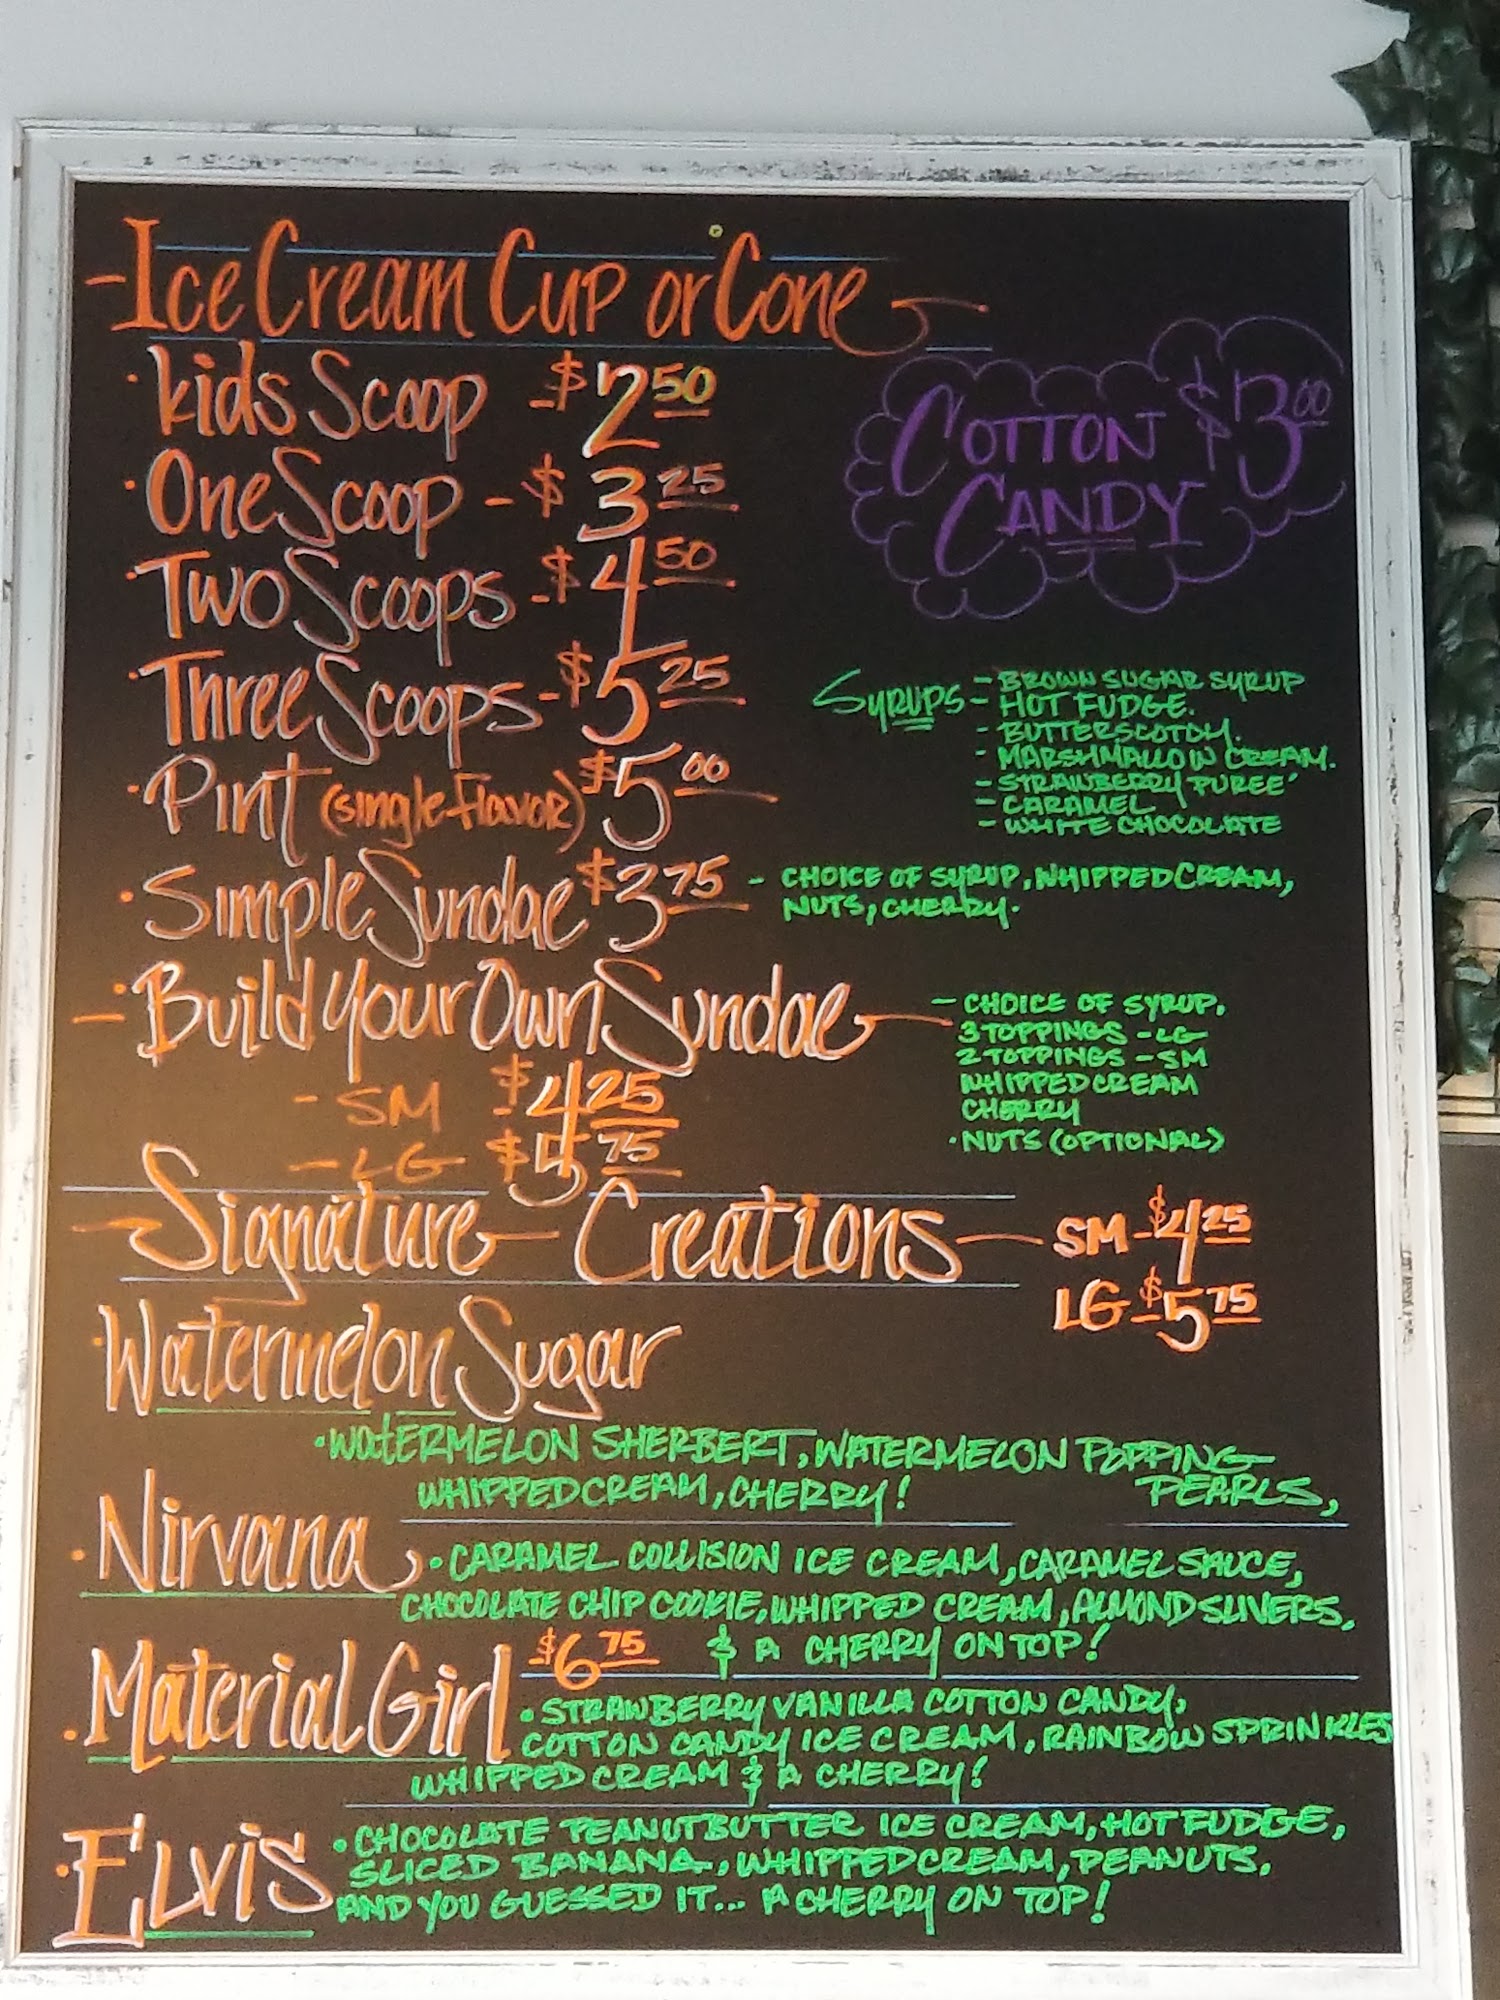 Ice Cream Cup or Cone
· kids Scoop $2.50
COTTON $3.00
CANDY
· One Scoop - $3.25
· Two Scoops - $4.50
· Three Scoops - $5.25
SYRUPS - BROWN SUGAR SYRUP
- HOT FUDGE.
- BUTTERSCOTCH.
- MARSHMALLOW CREAM.
- STRAWBERRY PUREE'
- CARAMEL
- WHITE CHOCOLATE
· Pint (single Flavor) $5.00
· Simple Sundae $3.75 - CHOICE OF SYRUP, WHIPPED CREAM,
NUTS, CHERRY.
· Build Your Own Sundae
- CHOICE OF SYRUP,
3 TOPPINGS - LG
2 TOPPINGS - SM
WHIPPED CREAM
CHERRY
· NUTS (OPTIONAL)
- SM $4.25
- LG $5.75
Signature Creations - SM - $4.25
LG $5.75
· Watermelon Sugar
· WATERMELON SHERBERT, WATERMELON POPPING
PEARLS,
WHIPPED CREAM, CHERRY!
· Nirvana · CARAMEL COLLISION ICE CREAM, CARAMEL SAUCE,
CHOCOLATE CHIP COOKIE, WHIPPED CREAM, ALMOND SLIVERS,
& A CHERRY ON TOP!
· Material Girl $6.75
· STRAWBERRY VANILLA COTTON CANDY,
COTTON CANDY ICE CREAM, RAINBOW SPRINKLES
WHIPPED CREAM & A CHERRY!
· ELVIS · CHOCOLATE PEANUTBUTTER ICE CREAM, HOT FUDGE,
SLICED BANANA, WHIPPED CREAM, PEANUTS,
AND YOU GUESSED IT... A CHERRY ON TOP!